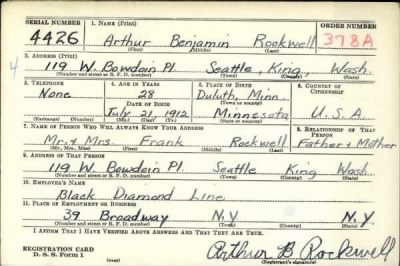 SERIAL NUMBER 1. NAME (Print) ORDER NUMBER
4426 Arthur Benjamin Rockwell 378A
(First) (Middle) (Last)
2. ADDRESS (Print)
4 119 W. Bowdoin Pl. Seattle, King, Wash.
(Number and street or R. F. D. number) (Town) (County) (State)
3. TELEPHONE 4. AGE IN YEARS 5. PLACE OF BIRTH 6. COUNTRY OF CITIZENSHIP
None 28 Duluth, Minn.
DATE OF BIRTH (Town or county)
July 21, 1912 Minnesota U.S.A.
(Exchange) (Number) (Mo.) (Day) (Yr.) (State or country)
7. NAME OF PERSON WHO WILL ALWAYS KNOW YOUR ADDRESS 8. RELATIONSHIP OF THAT PERSON
Mr. & Mrs. Frank Rockwell Father & Mother
(Mr., Mrs., Miss) (First) (Middle) (Last)
9. ADDRESS OF THAT PERSON
119 W. Bowdoin Pl. Seattle King Wash.
(Number and street or R. F. D. number) (Town) (County) (State)
10. EMPLOYER'S NAME
Black Diamond Line
11. PLACE OF EMPLOYMENT OR BUSINESS
39 Broadway N.Y N.Y.
(Number and street or R. F. D. number) (Town) (County) (State)
I AFFIRM THAT I HAVE VERIFIED ABOVE ANSWERS AND THAT THEY ARE TRUE.
REGISTRATION CARD
D. S. S. Form 1 (over) Arthur B Rockwell
(Registrant's signature)